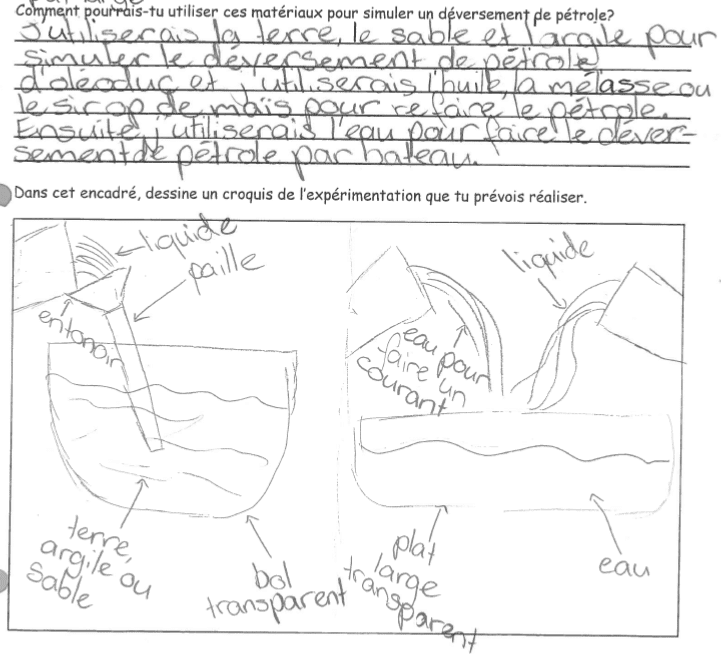 Comment pourrais-tu utiliser ces matériaux pour simuler un déversement de pétrole?
J'utiliserais la terre, le sable et l'argile pour
simuler le déversement de pétrole
d'oléoduc et j'utiliserais l'huile, la mélasse ou
le sirop de maïs pour refaire le pétrole.
Ensuite, j'utiliserais l'eau pour faire le déver-
sement de pétrole par bateau.
Dans cet encadré, dessine un croquis de l'expérimentation que tu prévois réaliser.
liquide
paille
entonoir
terre,
argile ou
sable
bol
transparent
liquide
eau pour
faire un
courant
plat
large
transparent
eau